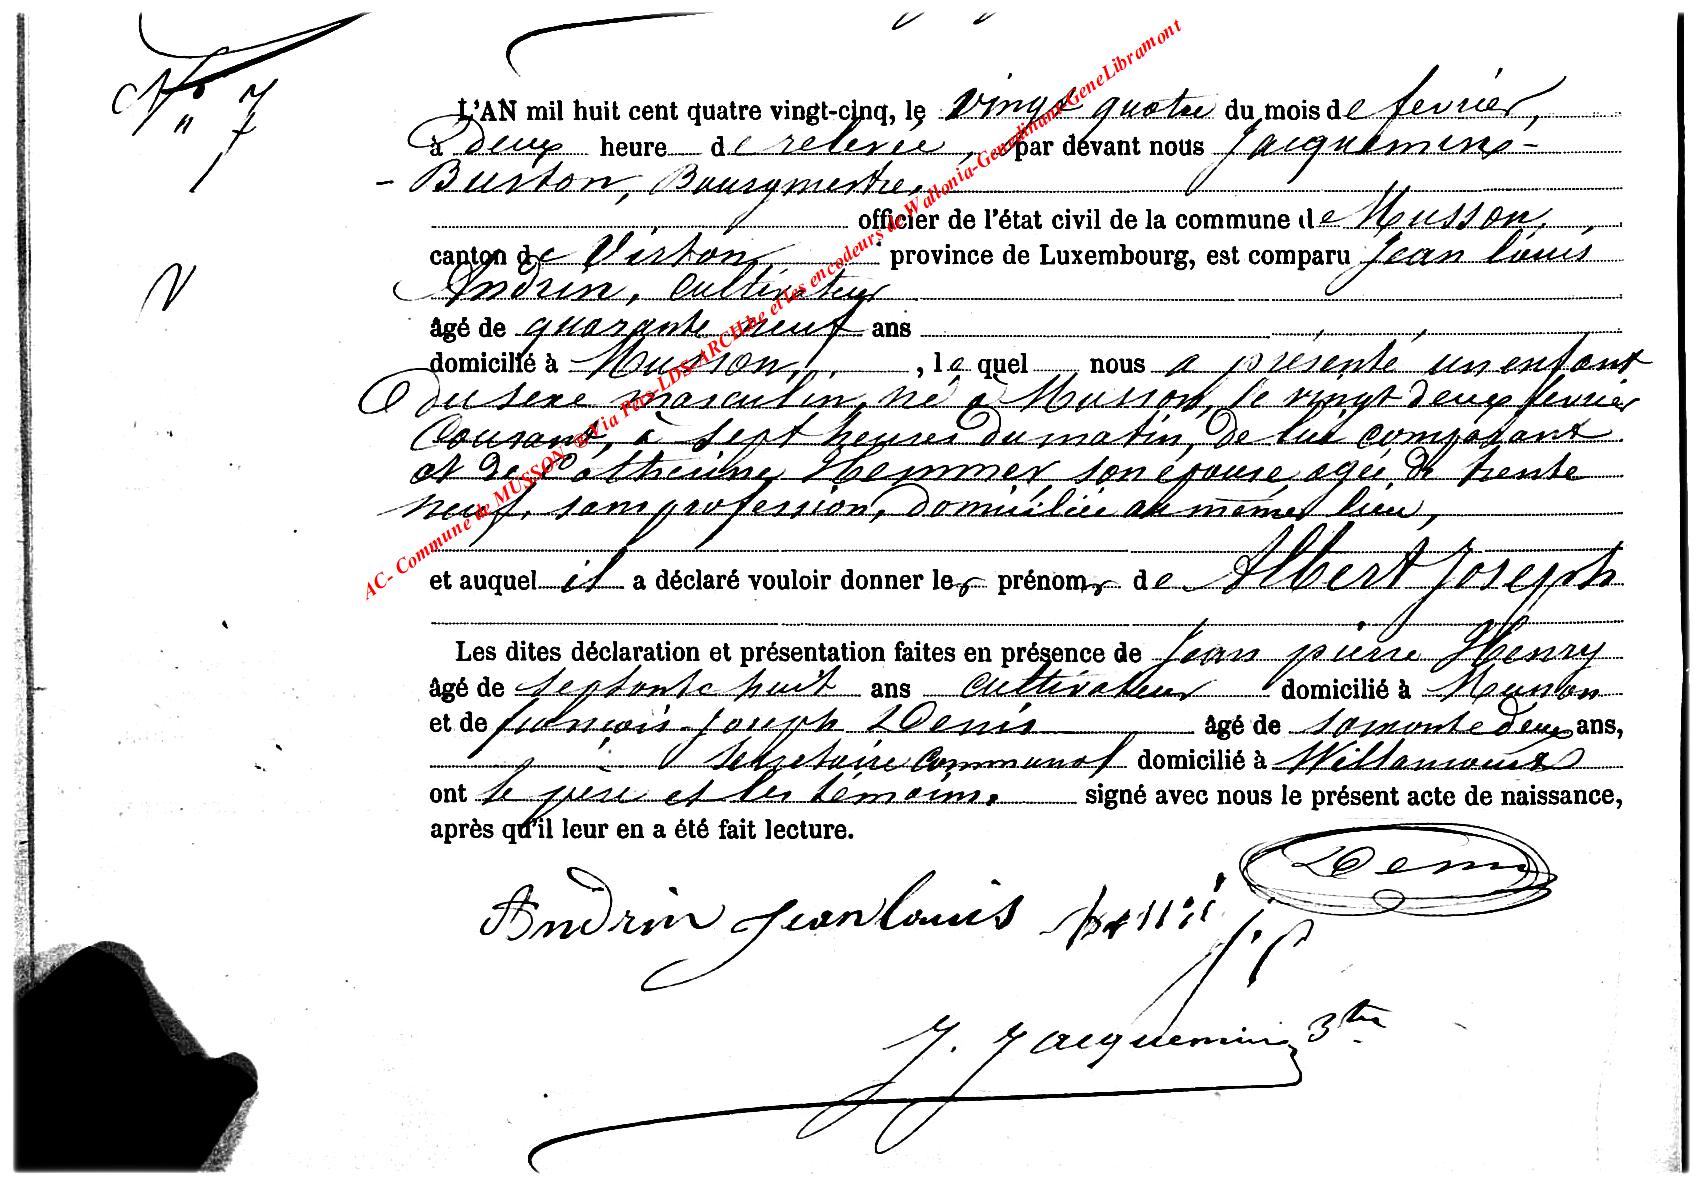 N° 7
" 7
L'AN mil huit cent quatre vingt-cinq, le vingt quatre du mois de fevrier,
à deux heure de relevée, par devant nous Jacquemin-
- Burton, Bourgmestre,
officier de l'état civil de la commune de Musson,
canton de Virton province de Luxembourg, est comparu Jean louis
V
Andrin, cultivateur
âgé de quarante neuf ans
domicilié à Musson, , le quel nous a présenté un enfant
du sexe masculin, né à Musson, le vingt deux fevrier
courant, à sept heures du matin, de lui comparant
et de Catherine Hemmer son épouse, agée de trente
neuf, sans profession, domiciliée au même lieu,
et auquel il a déclaré vouloir donner les prénoms de Albert Joseph
Les dites déclaration et présentation faites en présence de Jean pierre Henry
âgé de septante huit ans cultivateur domicilié à Musson
et de francois Joseph Denis âgé de soixante deux ans,
secretaire communal domicilié à Willancourt
ont le père et les témoins, signé avec nous le présent acte de naissance,
après qu'il leur en a été fait lecture.
Denis
Andrin Jean louis
J. P.
J. Jacquemin Btre
AC- Commune de MUSSON @Via Pers-LDS-ARCH.be et les encodeurs de Wallonia-Genedinant-GeneLibramont